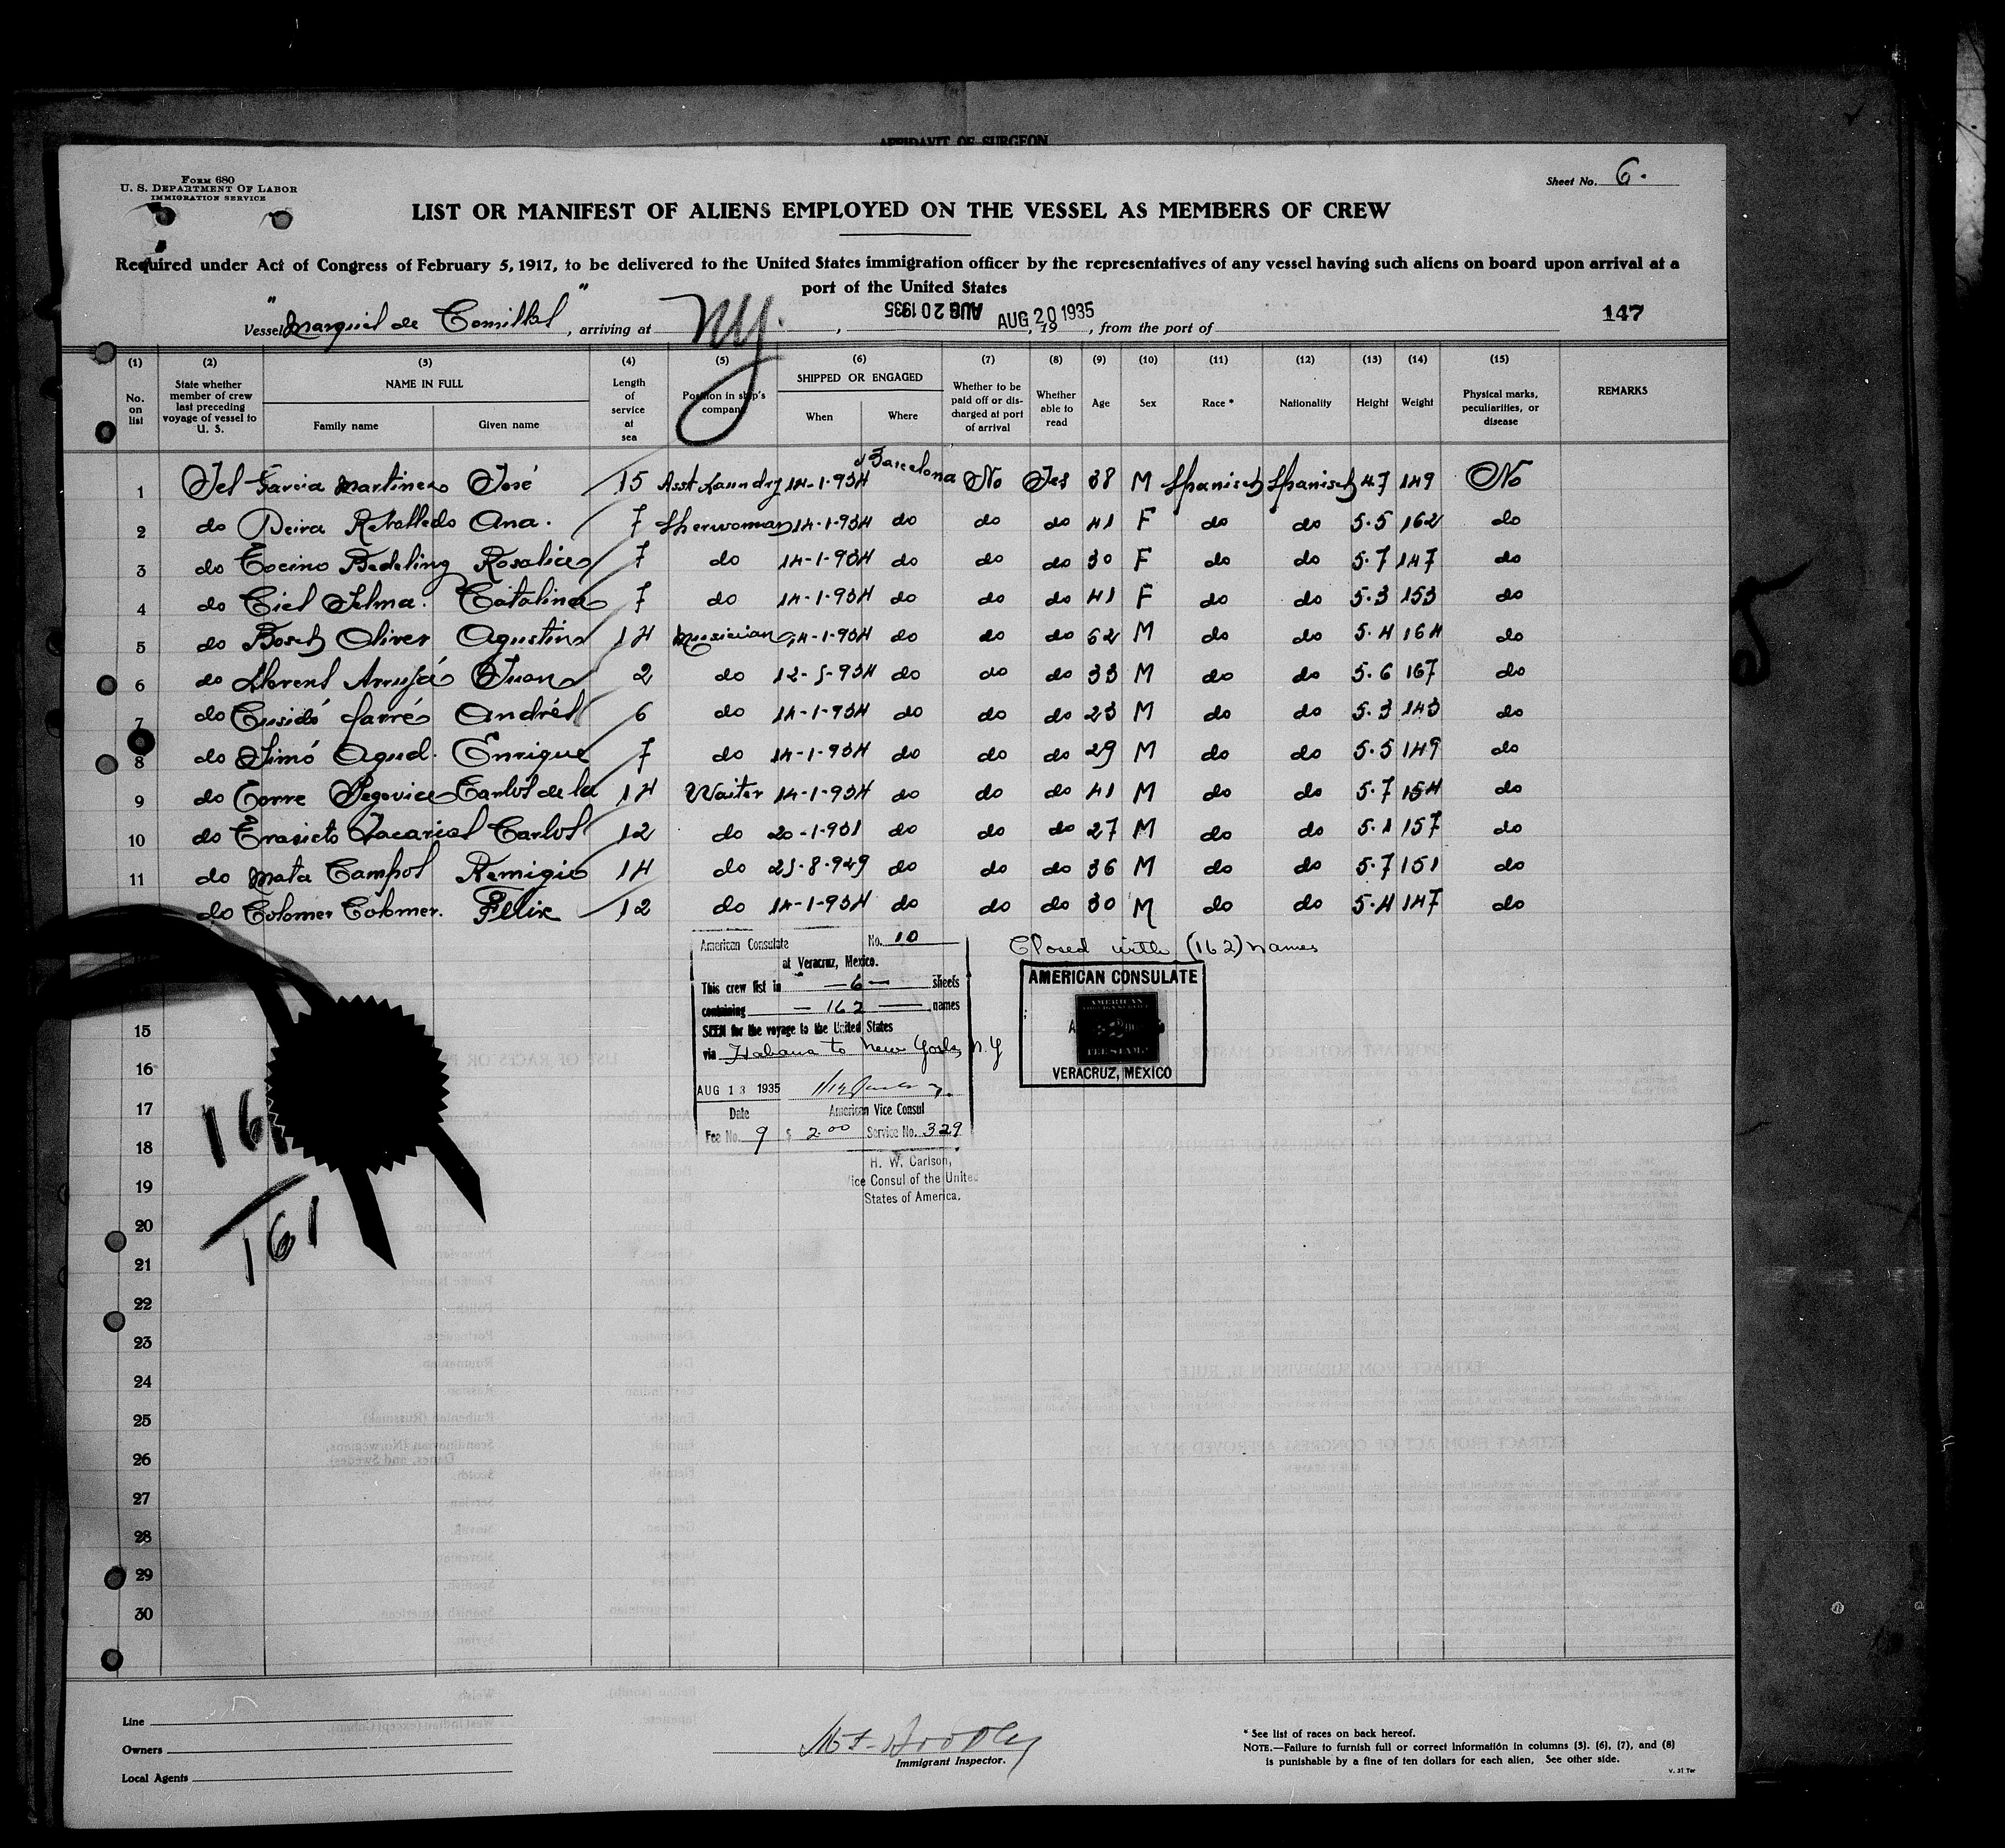 AFFIDAVIT OF SURGEON
Form 680
U. S. Department Of Labor
IMMIGRATION SERVICE
Sheet No. 6.
LIST OR MANIFEST OF ALIENS EMPLOYED ON THE VESSEL AS MEMBERS OF CREW
Required under Act of Congress of February 5, 1917, to be delivered to the United States immigration officer by the representatives of any vessel having such aliens on board upon arrival at a
port of the United States
Vessel "Marqués de Comillas", arriving at N.Y., AUG 20 1935 AUG 20 1935, 19, from the port of
147
(1) (2) (3) (4) (5) (6) (7) (8) (9) (10) (11) (12) (13) (14) (15)
No. on list State whether member of crew last preceding voyage of vessel to U. S. NAME IN FULL Family name Given name Length of service at sea Position in ship's company SHIPPED OR ENGAGED When Where Whether to be paid off or discharged at port of arrival Whether able to read Age Sex Race * Nationality Height Weight Physical marks, peculiarities, or disease REMARKS
1 Yes Garcia Martinez José 15 Asst Laundry 14-1-934 Barcelona No Yes 38 M Spanish Spanish 4.7 149 No
2 do Reballedo Ana. 7 14-1-934 do do do 41 F do do 5.5 162 do
3 do Cocino Rosalia 7 do 14-1-934 do do do 30 F do do 5.7 147 do
4 do Catalina 7 do 14-1-934 do do do 41 F do do 5.3 153 do
5 do Bosch Oliver Agustin 14 Musician 14-1-934 do do do 62 M do do 5.4 164 do
6 do Llorens Arrufá Juan 2 do 12-5-934 do do do 33 M do do 5.6 167 do
7 do Cusidó farré Andrés 6 do 14-1-934 do do do 23 M do do 5.3 143 do
8 do Simó Agud. Enrique 7 do 14-1-934 do do do 29 M do do 5.5 149 do
9 do Torre Segovia Carlos de la 14 Waiter 14-1-934 do do do 41 M do do 5.7 154 do
10 do Zacarias Carlos 12 do 20-1-931 do do do 27 M do do 5.1 157 do
11 do Mata Campos Remigio 14 do 25-8-929 do do do 36 M do do 5.7 151 do
do Colomer Colomer. Felix 12 do 14-1-934 do do do 30 M do do 5.4 147 do
Closed with (162) names
American Consulate No. 10
at Veracruz, Mexico.
This crew list in — 6 — sheets
containing — 162 — names
SEEN for the voyage to the United States
via Habana to New York, N.Y
AUG 13 1935
Date American Vice Consul
Fee No. 9 $ 2.00 Service No. 329
H. W. Carlson,
Vice Consul of the United
States of America.
AMERICAN CONSULATE
AMERICAN
FEE STAMP
VERACRUZ, MEXICO
15
16
17
18
19
20
21
22
23
24
25
26
27
28
29
30
161
Line
Owners
Local Agents
Immigrant Inspector.
* See list of races on back hereof.
NOTE.—Failure to furnish full or correct information in columns (3), (6), (7), and (8)
is punishable by a fine of ten dollars for each alien. See other side.